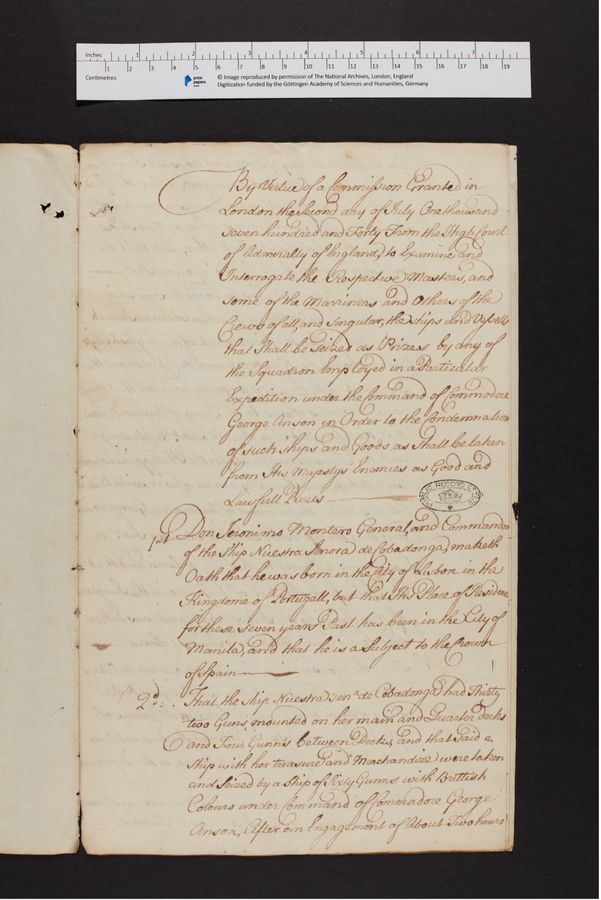 Inches 1 2 3 4 5 6 7
1 2 3 4 5 6 7 8 9 10 11 12 13 14 15 16 17 18 19
Centimetres
prize papers
© Image reproduced by permission of The National Archives, London, England
Digitization funded by the Göttingen Academy of Sciences and Humanities, Germany
By Virtue of a Commission Granted in
London the Second day of July One thousand
Seven hundred and Forty From the High Court
of Admiralty of England, to Examine and
Interrogate the Respective Masters, and
some of the Marriners and Others of the
Crews of all, and Singular, the Ships and Vessells
that Shall be Seized as Prizes by any of
the Squadron Employed in a Particular
Expedition under the Command of Commodore
George Anson in Order to the Condemnation
of such Ships and Goods as Shall be taken
from His Majestys Enemies as Good and
Lawfull Prizes
PUBLIC RECORD OFFICE
1st Don Jeronimo Montero General, and Commander
of the Ship Nuestra Senora de Cobadonga, maketh
Oath that he was born in the City of Lisbon in the
Kingdome of Portugall, but that His Place of Residence
for these Seven years Past has been in the City of
Manila, and that he is a Subject to the Crown
of Spain
2d. That the Ship Nuestra Senra de Cobadonga had Thirty
two Guns mounted on her main and Quarter Decks
and Four Gunns between Decks, and that Said
Ship with her treasure and Merchandize were taken
and Seized by a Ship of Sixty Gunns with Brittish
Colours under Command of Commadore George
Anson, After an Engagement of About Two hours